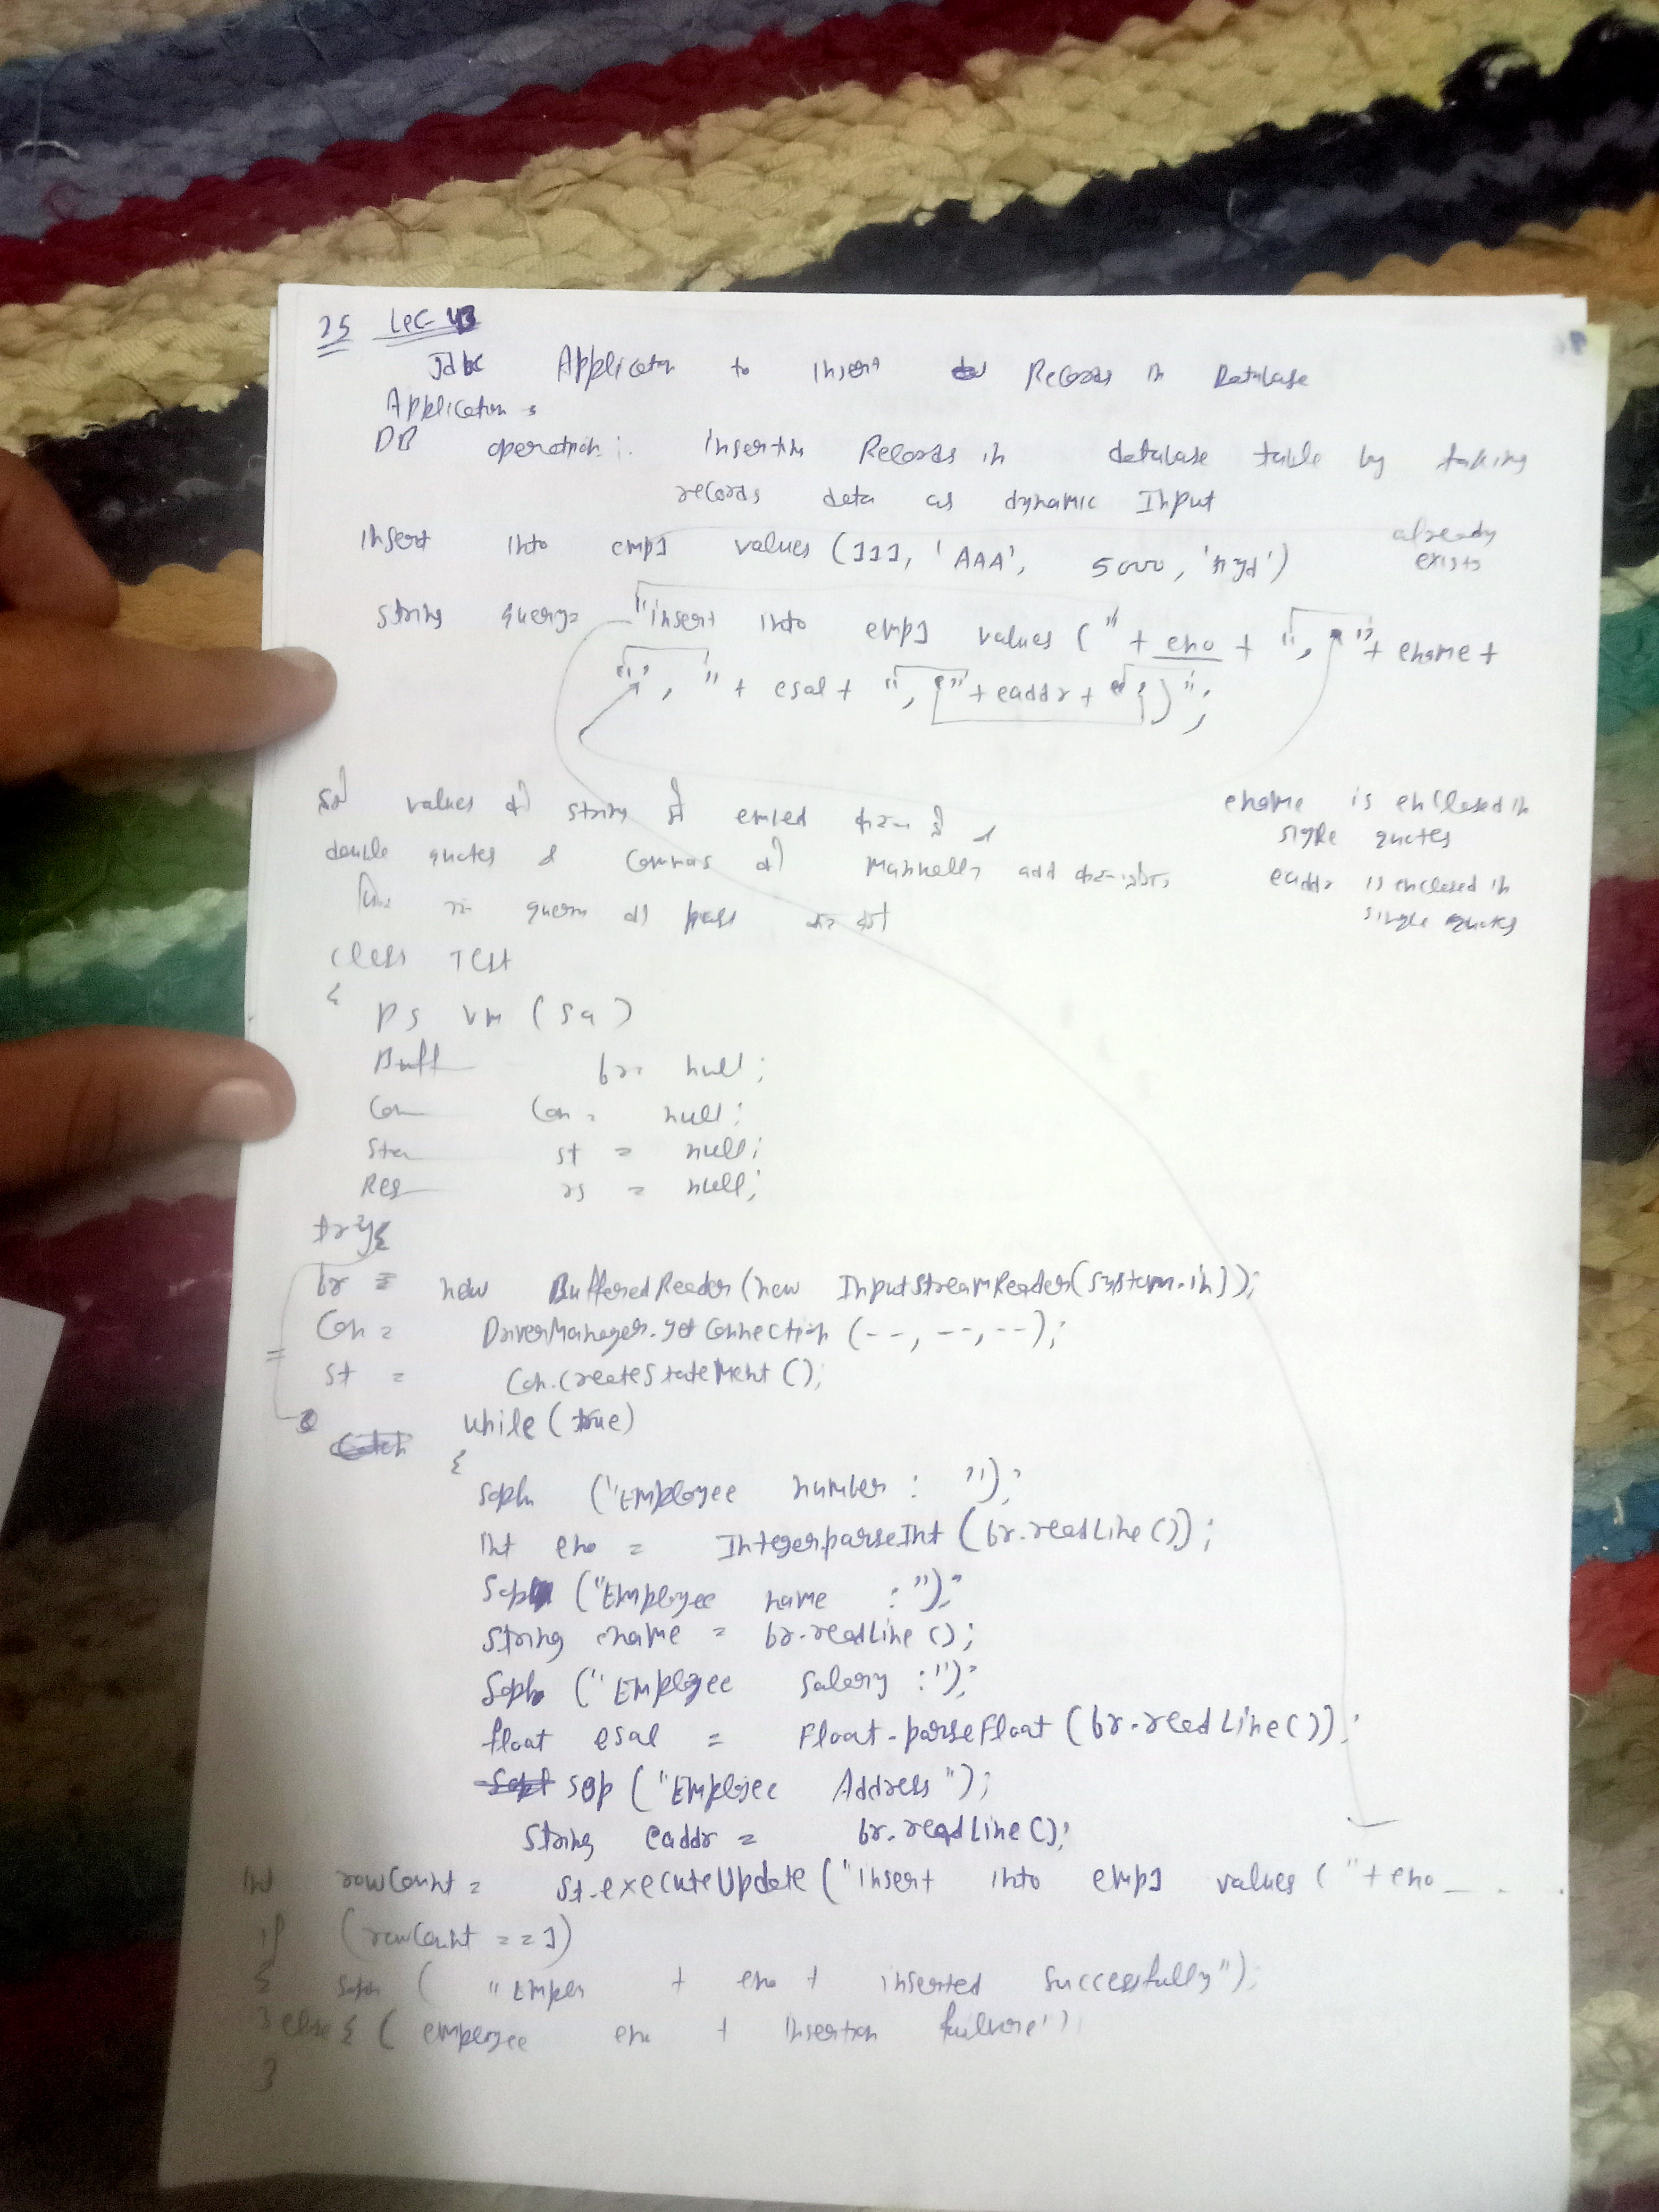 25 Lec 43
Jdbc Application to insert Records in Database
Application :
DB operation : inserting Records in database table by taking
records data as dynamic Input
insert into emp1 values (111, 'AAA', 5000, 'hyd') already exists
String query= "insert into emp1 values (" + eno + ", '" + ename +
"', " + esal + ", '" + eaddr + "')";
values को string में embed करने के
double quotes & commas को Manually add
query को pass
ename is enclosed in
single quotes
eaddr is enclosed in
single quotes
class Test
{
ps vm (sa)
Buff br= null;
Con Con = null;
Sta st = null;
Res rs = null;
try{
br = new BufferedReader(new InputStreamReader(System.in));
Con = DriverManager.getConnection (--, --, --);
st = Con.CreateStatement ();
while (true)
{
Sopln ("Employee number : ");
int eno = Integer.parseInt (br.readLine ());
Sopln ("Employee name : ");
String ename = br.readLine ();
Sopln ("Employee Salary :");
float esal = Float.parseFloat (br.readLine ());
sop ("Employee Address");
String eaddr = br.readLine ();
int rowCount = st.executeUpdate ("insert into emp1 values ( "+ eno - - .
if (rowCount == 1)
{ sopln ( "Emplo + eno + inserted successfully");
} else { ( employee eno + insertion failure");
}